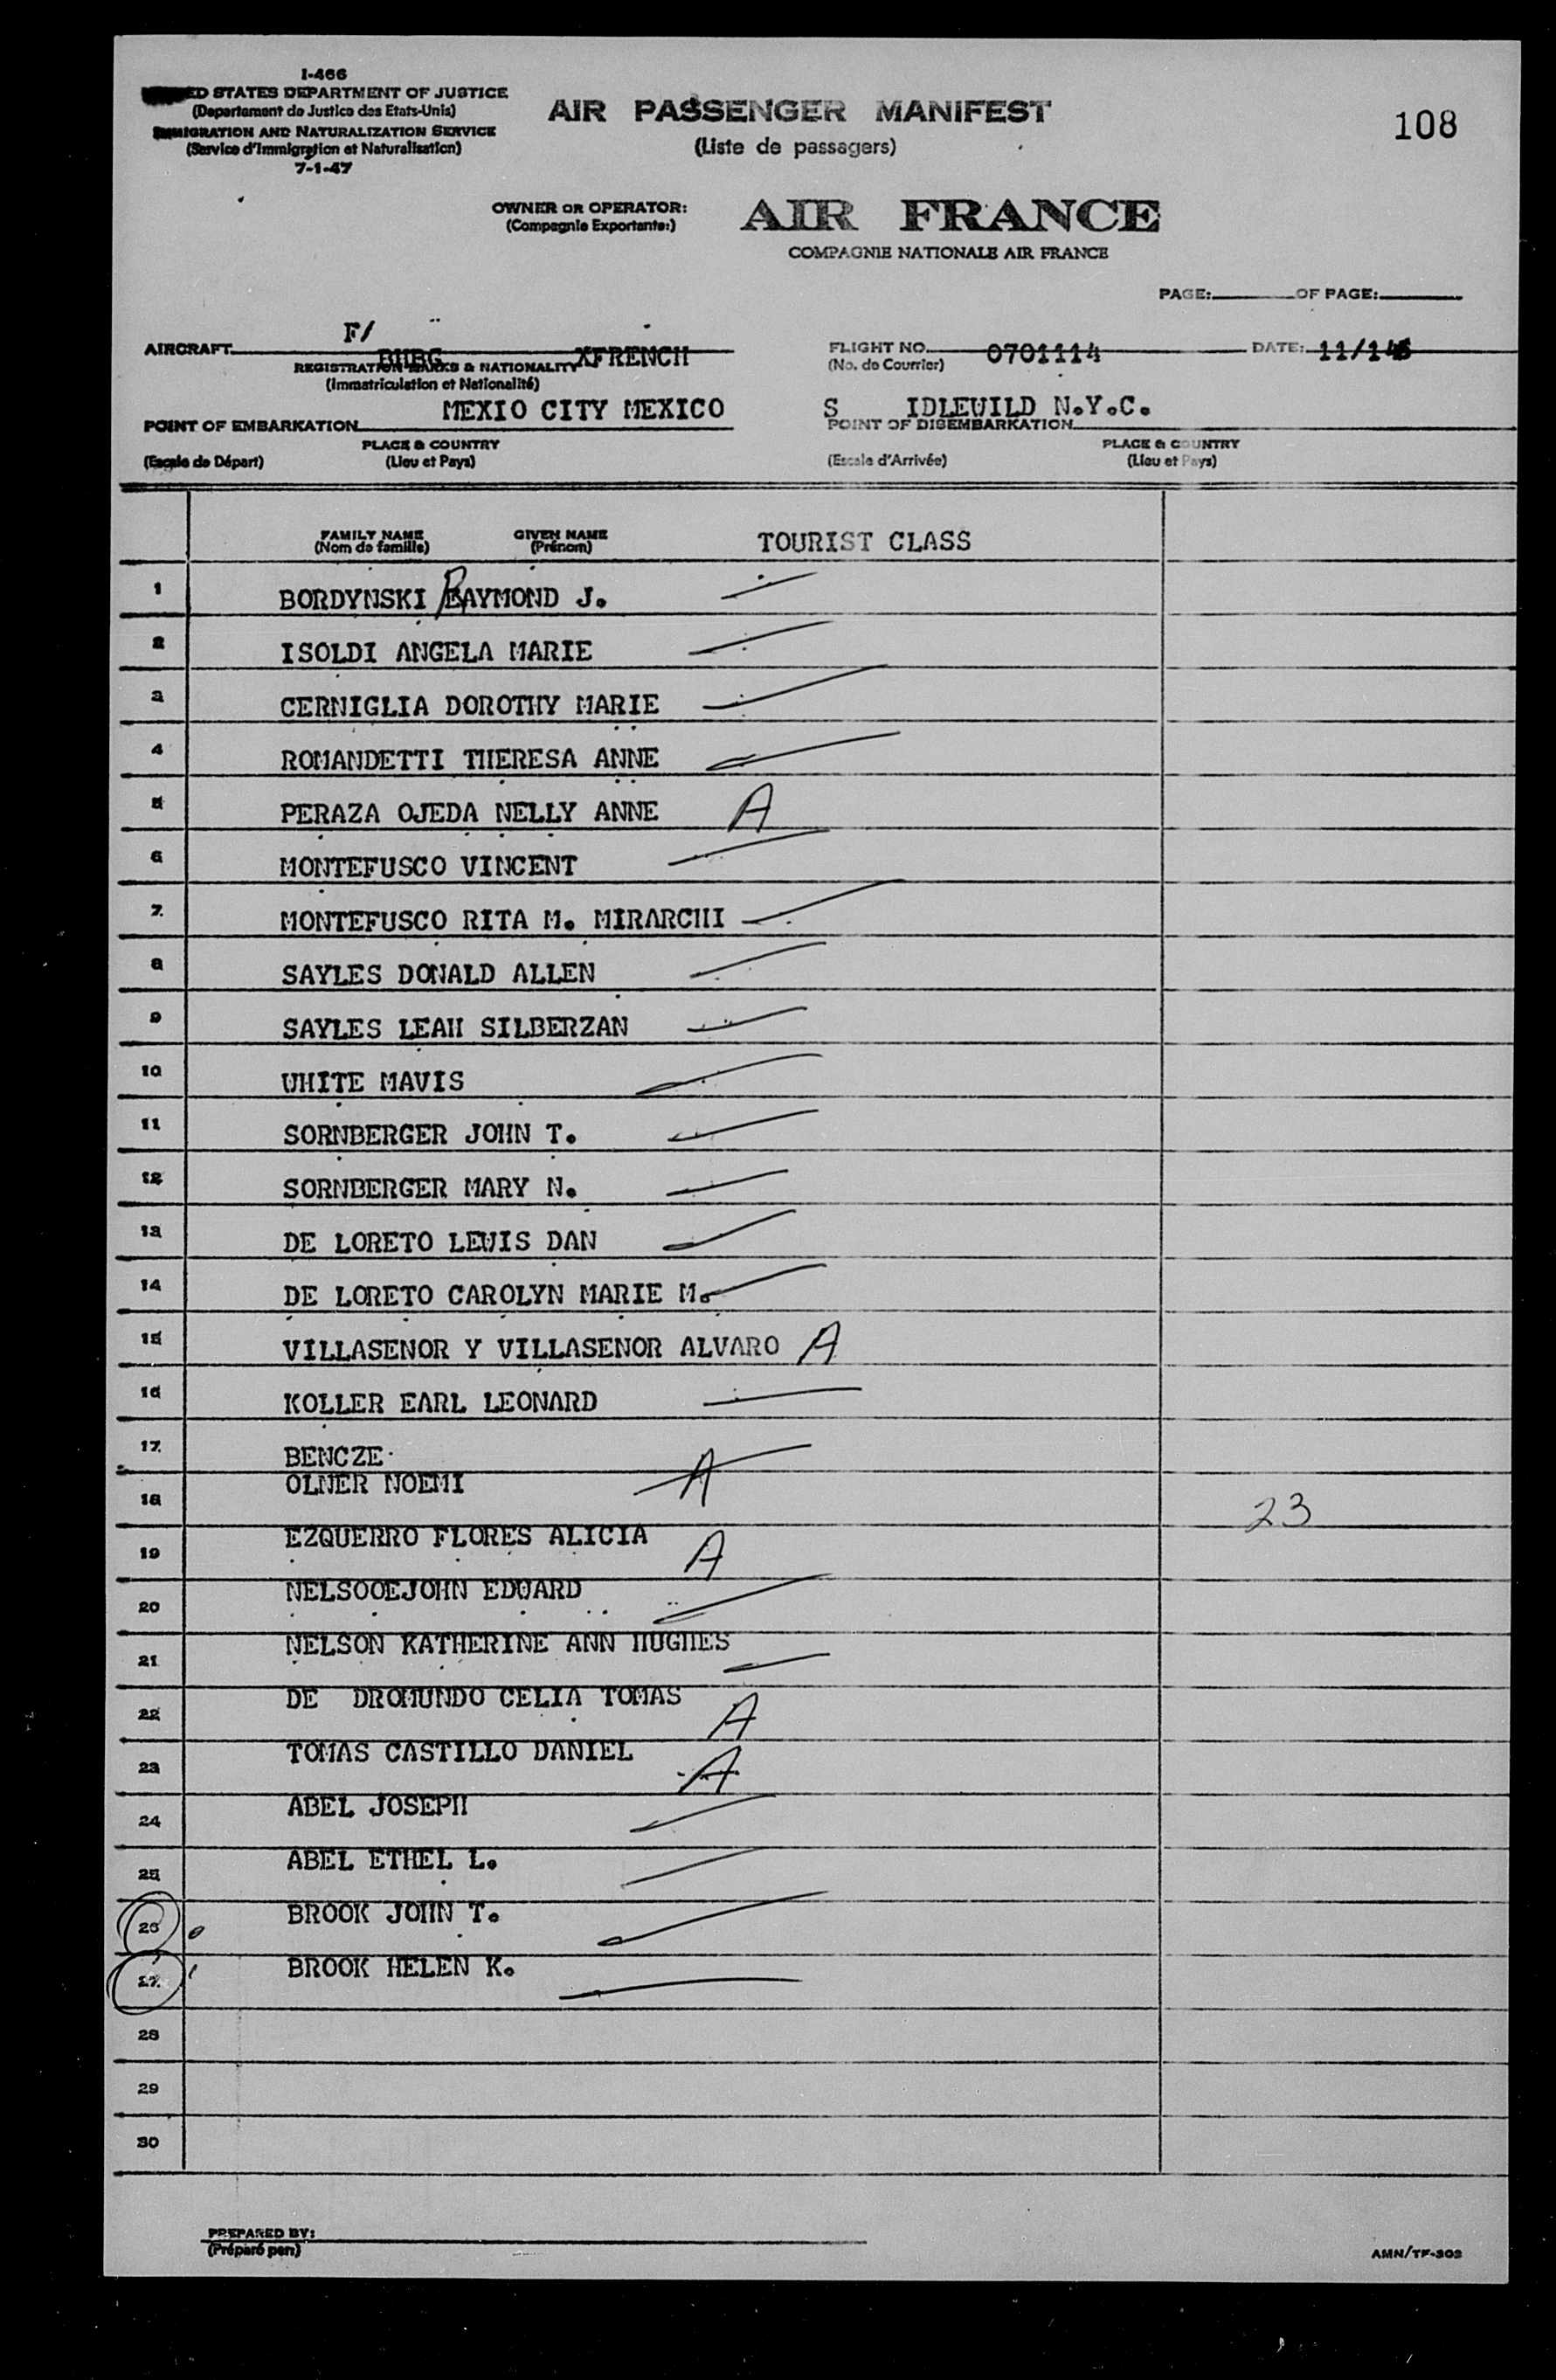 I-466
ED STATES DEPARTMENT OF JUSTICE
(Departament de Justice des Etats-Unis)
IMMIGRATION AND NATURALIZATION SERVICE
(Service d'Immigration et Naturalisation)
7-1-47
AIR PASSENGER MANIFEST
(Liste de passagers)
108
OWNER OR OPERATOR:
(Compagnie Exportante:)
AIR FRANCE
COMPAGNIE NATIONALE AIR FRANCE
PAGE: OF PAGE:
F/
AIRCRAFT BHBG XFRENCH
REGISTRATION MARKS & NATIONALITY
(Immatriculation et Nationalité)
FLIGHT NO. 0701114 DATE: 11/1
(No. de Courrier)
MEXIO CITY MEXICO
POINT OF EMBARKATION
PLACE & COUNTRY
(Escale de Départ) (Lieu et Pays)
S IDLEWILD N.Y.C.
POINT OF DISEMBARKATION
PLACE & COUNTRY
(Escale d'Arrivée) (Lieu et Pays)
FAMILY NAME GIVEN NAME
(Nom de famille) (Prénom)
TOURIST CLASS
1 BORDYNSKI RAYMOND J.
2 ISOLDI ANGELA MARIE
3 CERNIGLIA DOROTHY MARIE
4 ROMANDETTI THERESA ANNE
5 PERAZA OJEDA NELLY ANNE A
6 MONTEFUSCO VINCENT
7 MONTEFUSCO RITA M. MIRARCHI
8 SAYLES DONALD ALLEN
9 SAYLES LEAH SILBERZAN
10 WHITE MAVIS
11 SORNBERGER JOHN T.
12 SORNBERGER MARY N.
13 DE LORETO LEWIS DAN
14 DE LORETO CAROLYN MARIE M.
15 VILLASENOR Y VILLASENOR ALVARO A
16 KOLLER EARL LEONARD
17 BENCZE
18 OLNER NOEMI A 23
19 EZQUERRO FLORES ALICIA A
20 NELSOOEJOHN EDWARD
21 NELSON KATHERINE ANN HUGHES
22 DE DROMUNDO CELIA TOMAS A
23 TOMAS CASTILLO DANIEL A
24 ABEL JOSEPH
25 ABEL ETHEL L.
26 BROOK JOHN T.
27 BROOK HELEN K.
28
29
30
PREPARED BY:
(Préparé par:)
AMN/TF-302